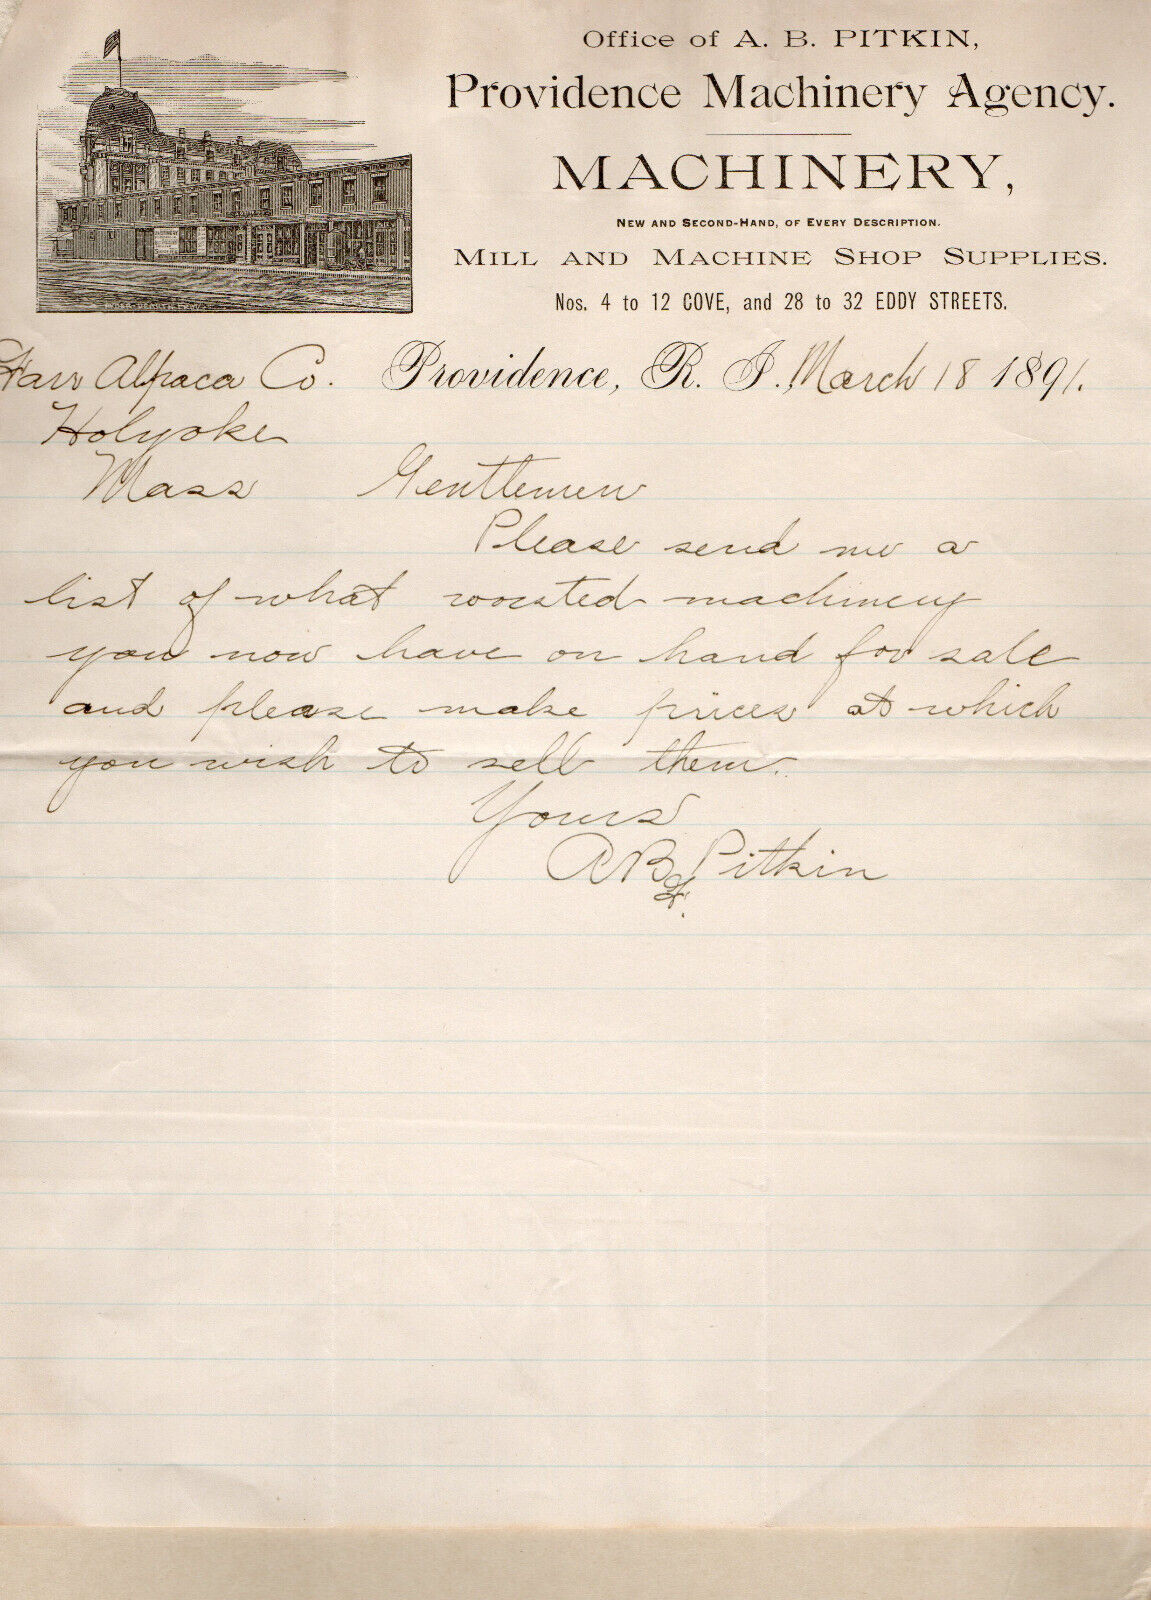 Office of A. B. PITKIN,
Providence Machinery Agency.
MACHINERY,
NEW AND SECOND-HAND, OF EVERY DESCRIPTION.
MILL AND MACHINE SHOP SUPPLIES.
Nos. 4 to 12 COVE, and 28 to 32 EDDY STREETS.
Farr Alpaca Co. Providence, R. I., March 18 1891.
Holyoke
Mass Gentlemen
Please send me a
list of what worsted machinery
you now have on hand for sale
and please make prices at which
you wish to sell them.
Yours
A B Pitkin